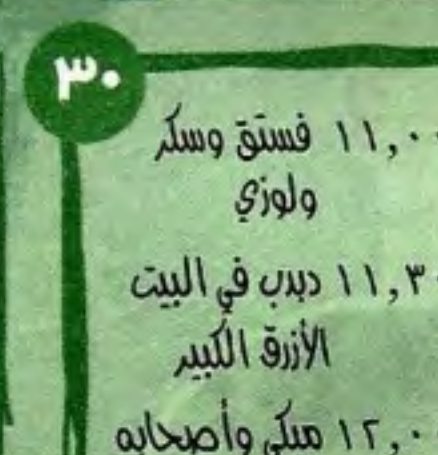 ٣٠
١١,٠٠ فستق وسكر
ولوزي
١١,٣٠ دبدب في البيت
الأزرق الكبير
١٢,٠٠ ميكي وأصحابه